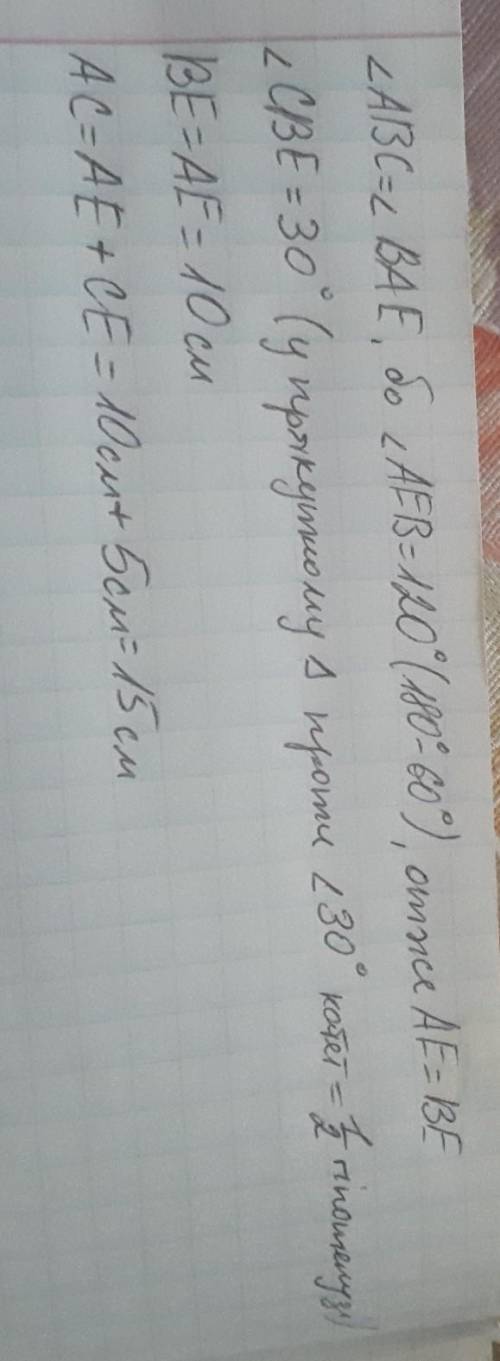 ∠ABC=∠ BAE, бо ∠AEB=120°(180°-60°), отже AE=BE
∠CBE=30° (у прякутному Δ проти ∠30° катет = 1/2 гіпотенузи)
BE=AE=10см
AC=AE+CE=10см+5см=15см